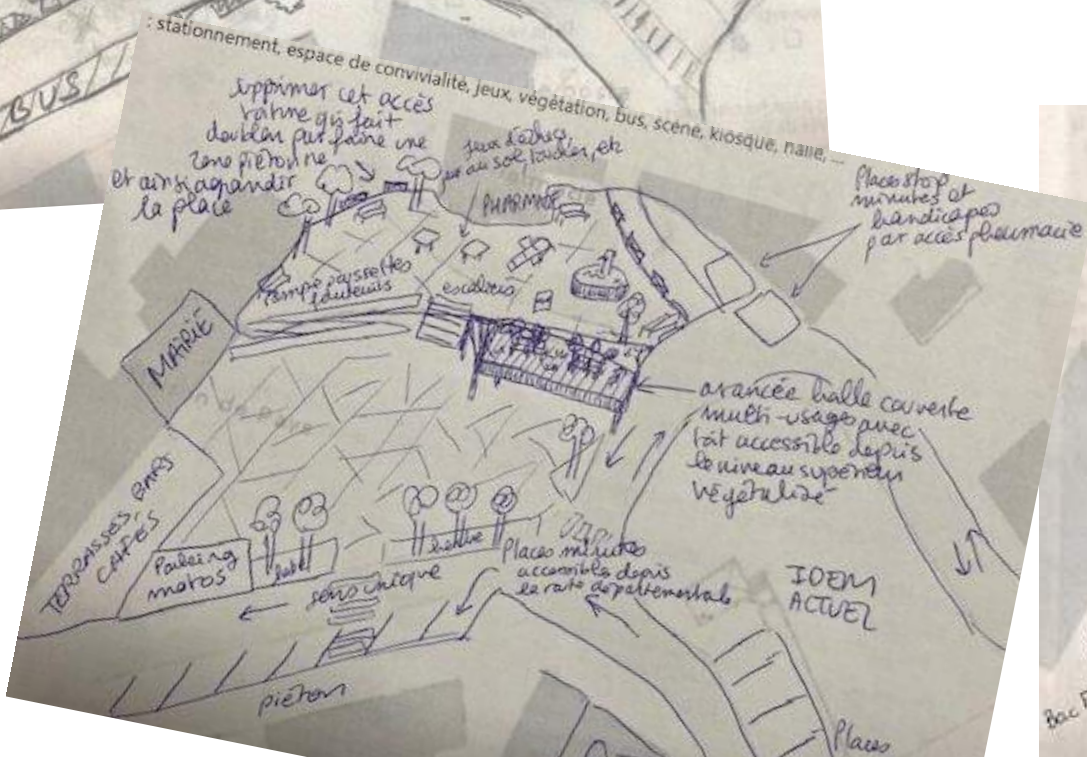 BUS
: stationnement, espace de convivialité, jeux, végétation, bus, scène, kiosque, halle, ...
supprimer cet accès
voiture qui fait
doublon pur faire une
zone piétonne
et ainsi agrandir
la place
jeux d'échecs,
au sol, etc
PHARMACIE
Places stop
minutes et
handicapés
par accès pharmacie
rampe poussettes
fauteuils
escaliers
MAIRIE
avancée halle couverte
multi-usages avec
toit accessible depuis
le niveau supérieur
végétalisé
TERRASSES, BARS
CAFÉS
Parking
motos
herbe
Places minutes
accessibles depuis
la route départementale
sens unique
IDEM
ACTUEL
piéton
Places
Bac